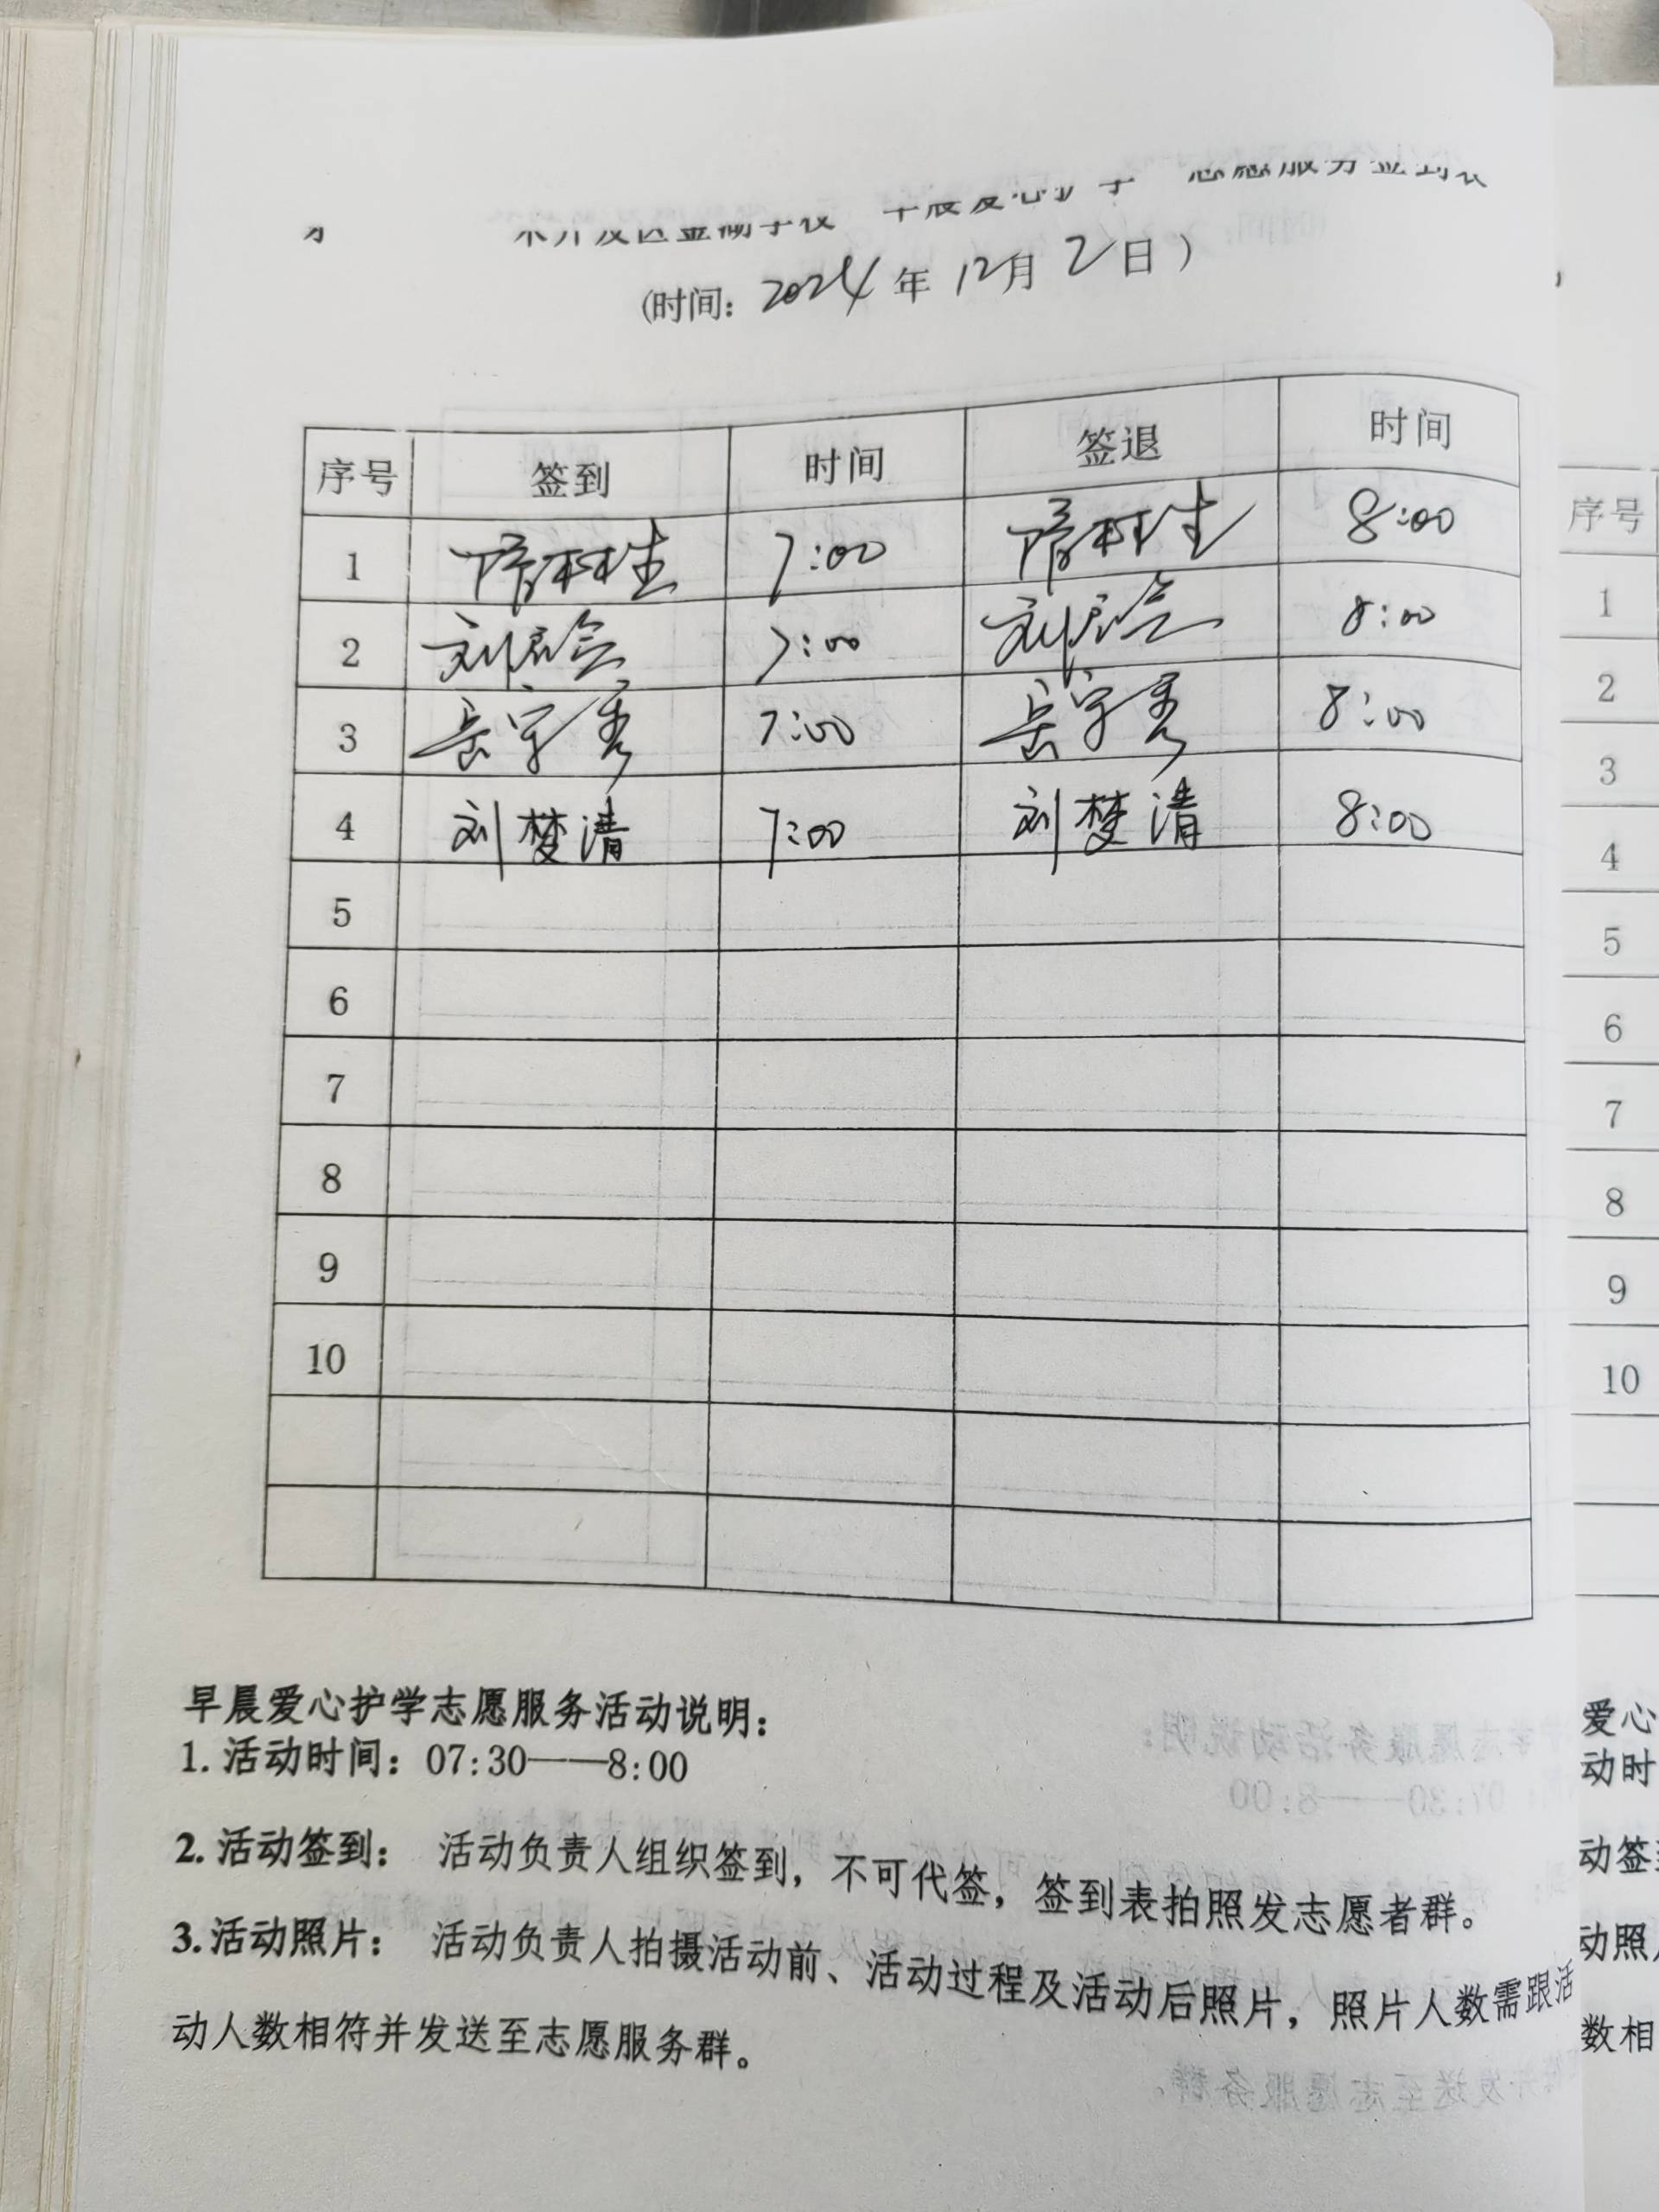 (时间: 2024年12月2日)
序号 签到 时间 签退 时间
1 7:00 8:00
2 刘 7:00 刘 8:00
3 岳 7:00 岳 8:00
4 刘梦清 7:00 刘梦清 8:00
5
6
7
8
9
10
早晨爱心护学志愿服务活动说明:
1.活动时间: 07:30——8:00
2.活动签到: 活动负责人组织签到,不可代签,签到表拍照发志愿者群。
3.活动照片: 活动负责人拍摄活动前、活动过程及活动后照片,照片人数需跟活
动人数相符并发送至志愿服务群。
序号
1
2
3
4
5
6
7
8
9
10
爱心
动时
动签
动照
数相